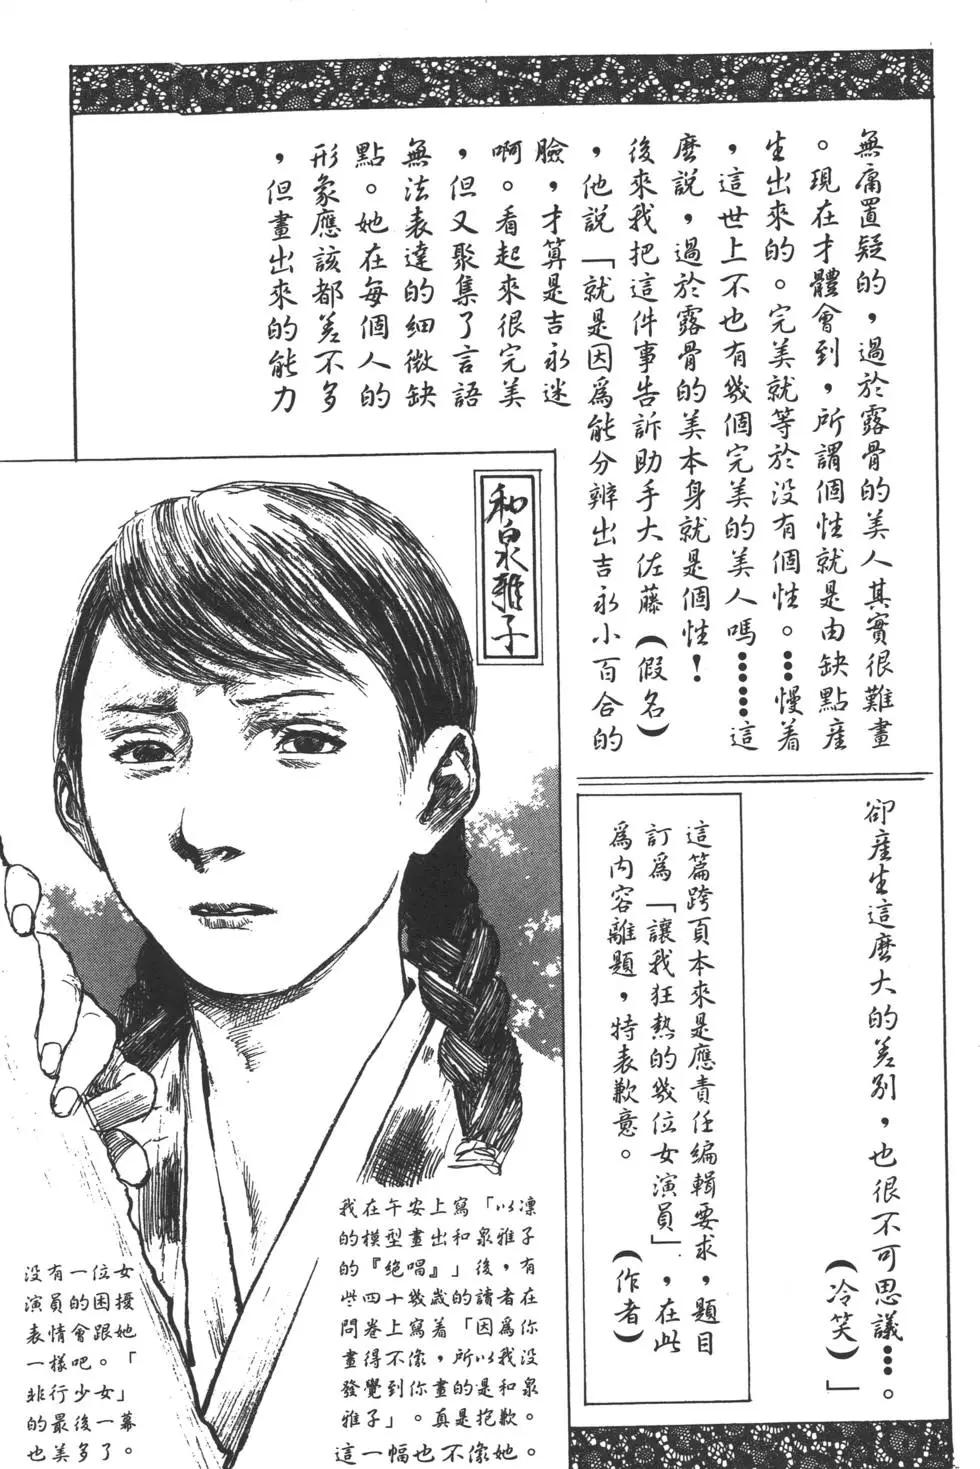 無庸置疑的，過於露骨的美人其實很難畫
。現在才體會到，所謂個性就是由缺點産
生出來的。完美就等於没有個性。…慢着
，這世上不也有幾個完美的美人嗎……這
麽說，過於露骨的美本身就是個性！
後來我把這件事告訴助手大佐藤（假名）
，他說「就是因爲能分辨出吉永小百合的
臉，才算是吉永迷
啊。看起來很完美
，但又聚集了言語
無法表達的細微缺
點。她在每個人的
形象應該都差不多
，但畫出來的能力
卻産生這麽大的差别，也很不可思議…。
（冷笑）」
這篇跨頁本來是應責任編輯要求，題目
訂爲「讓我狂熱的幾位女演員」，在此
爲内容離題，特表歉意。
（作者）
和泉雅子
我在午安上寫「以凛
的模型畫出和泉雅子
的『絶唱』」後，有
些四十幾歲的讀者在
問卷上寫着「因爲你
畫得不像，所以我没
發覺到你畫的是和泉
雅子」。真是抱歉。
這一幅也不像她。
没有一位女
演員的困擾
表情會跟她
一樣吧。「
非行少女」
的最後一幕
也美多了。